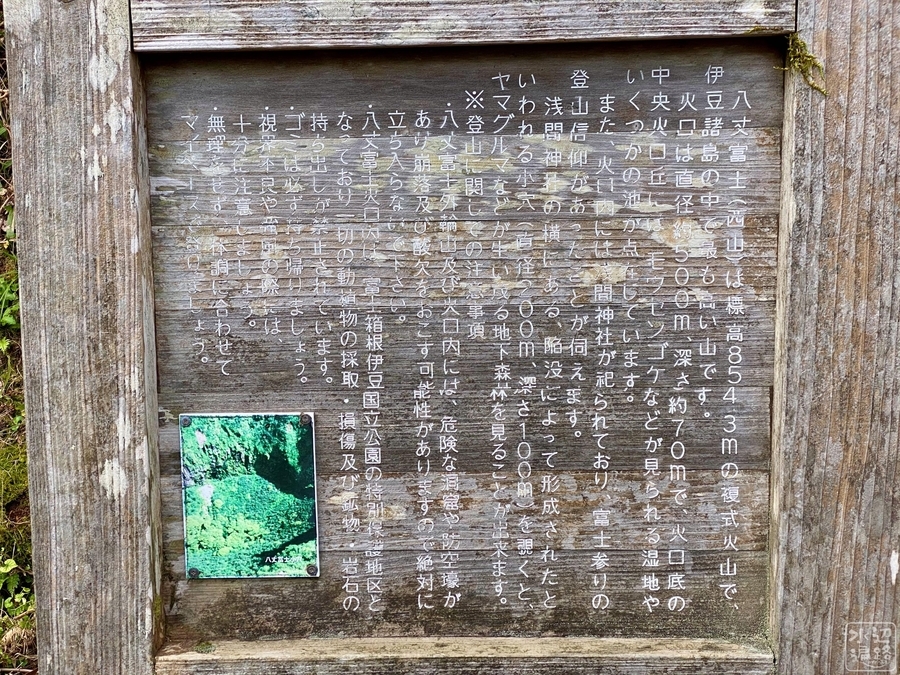 八丈富士(西山)は標高854.3mの複式火山で、
伊豆諸島の中で最も高い山です。
火口は直径約500m、深さ約70mで、火口底の
中央火口丘 モウセンゴケなどが見られる湿地や
いくつかの池が点在しています。
また、火口 には浅間神社が祀られており、富士参りの
登山信仰があったことが伺えます。
浅間神社の横にある、陥没によって形成されたと
いわれる小穴(直径 00m、深さ100m)を覗くと、
ヤマグルマなどが生い茂る地下森林を見ることが出来ます。
※登山に関しての注意事項
・八丈富士外輪山及び火口内には、危険な洞窟や防空壕が
あり崩落及び を起こす可能性がありますので絶対に
立ち入らないで下さい。
・八丈富士火口内は、富士箱根伊豆国立公園の特別保護地区と
なっており一切の動植物の採取・損傷及び鉱物・岩石の
持ち出しが禁止されています。
・ゴミは必ず持ち帰りましょう。
・視界不良や 雨の際には、
十分に注意しましょう。
・無理をせず、体調に合わせて
マイペースで しましょう。
八丈富士
水辺遍路